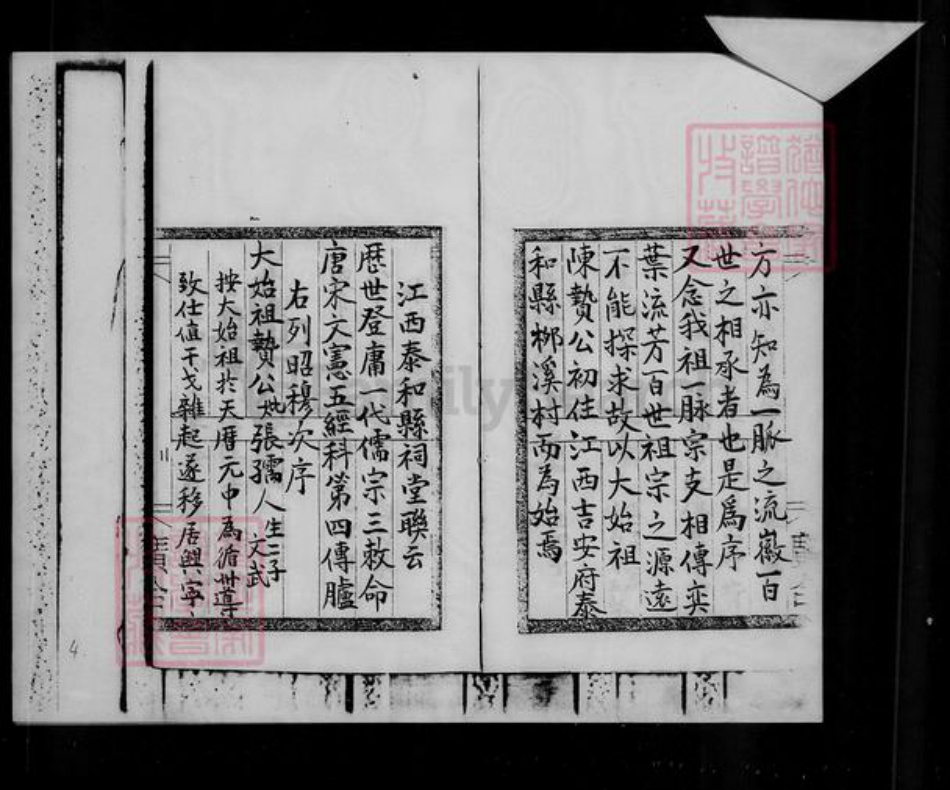 方亦知為一脈之流徽一百
世之相承者也是為序
又念我祖一脈宗支相傳奕
葉流芳百世祖宗之源遠
不能探求故以大始祖
陳贄公初住江西吉安府泰
和縣柳溪村而為始焉
江西泰和縣祠堂聯云
歷世登庸一代儒宗三敕命
唐宋文憲五經科第四傳臚
右列昭穆次序
大始祖贄公妣張孺人生二子文武
按大始祖於天曆元中為循州導
致仕值干戈雜起遂移居興寧
4